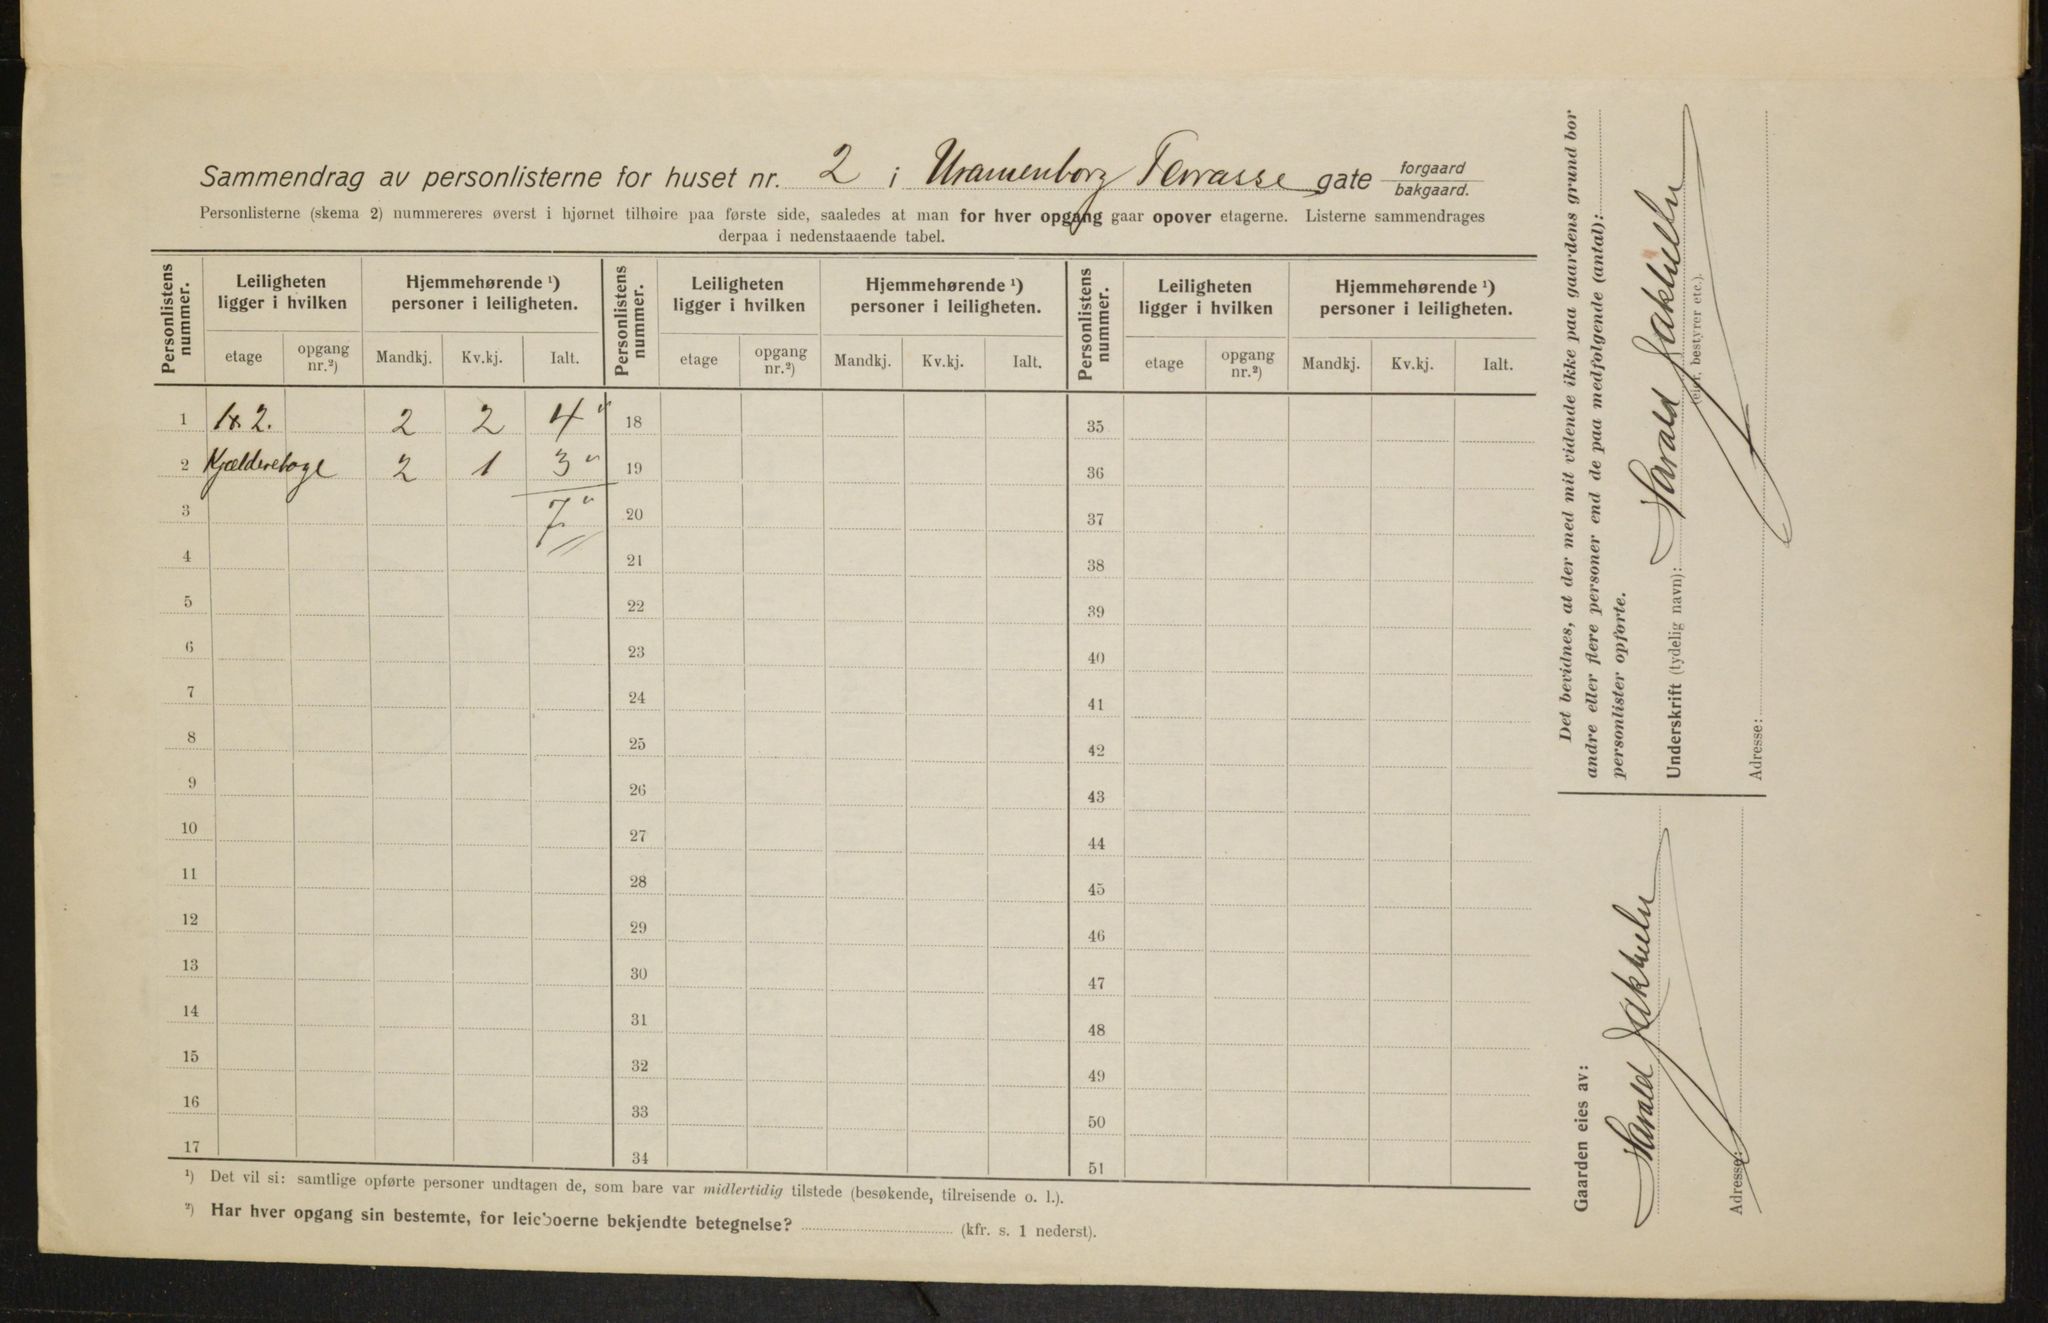 Sammendrag av personlisterne for huset nr. 2 i Uranienborg Terrasse gate forgaard bakgaard.
Personlisterne (skema 2) nummereres øverst i hjørnet tilhøire paa første side, saaledes at man for hver opgang gaar opover etagerne. Listerne sammendrages
derpaa i nedenstaaende tabel.
Personlistens nummer. Leiligheten ligger i hvilken Hjemmehørende ¹) personer i leiligheten. Personlistens nummer. Leiligheten ligger i hvilken Hjemmehørende ¹) personer i leiligheten. Personlistens nummer. Leiligheten ligger i hvilken Hjemmehørende ¹) personer i leiligheten.
etage opgang nr.²) Mandkj. Kv.kj. Ialt. etage opgang nr.²) Mandkj. Kv.kj. Ialt. etage opgang nr.²) Mandkj. Kv.kj. Ialt.
1 1 & 2. 2 2 4 18 35
2 Kjælderetage 2 1 3 19 36
3 7 20 37
4 21 38
5 22 39
6 23 40
7 24 41
8 25 42
9 26 43
10 27 44
11 28 45
12 29 46
13 30 47
14 31 48
15 32 49
16 33 50
17 34 51
¹) Det vil si: samtlige opførte personer undtagen de, som bare var midlertidig tilstede (besøkende, tilreisende o. l.).
²) Har hver opgang sin bestemte, for leieboerne bekjendte betegnelse? (kfr. s. 1 nederst).
Det bevidnes, at der med mit vidende ikke paa gaardens grund bor
andre eller flere personer end de paa medfølgende (antal):
personlister opførte.
Underskrift (tydelig navn): Harald
(eier, bestyrer etc.).
Adresse:
Gaarden eies av:
Harald
Adresse: